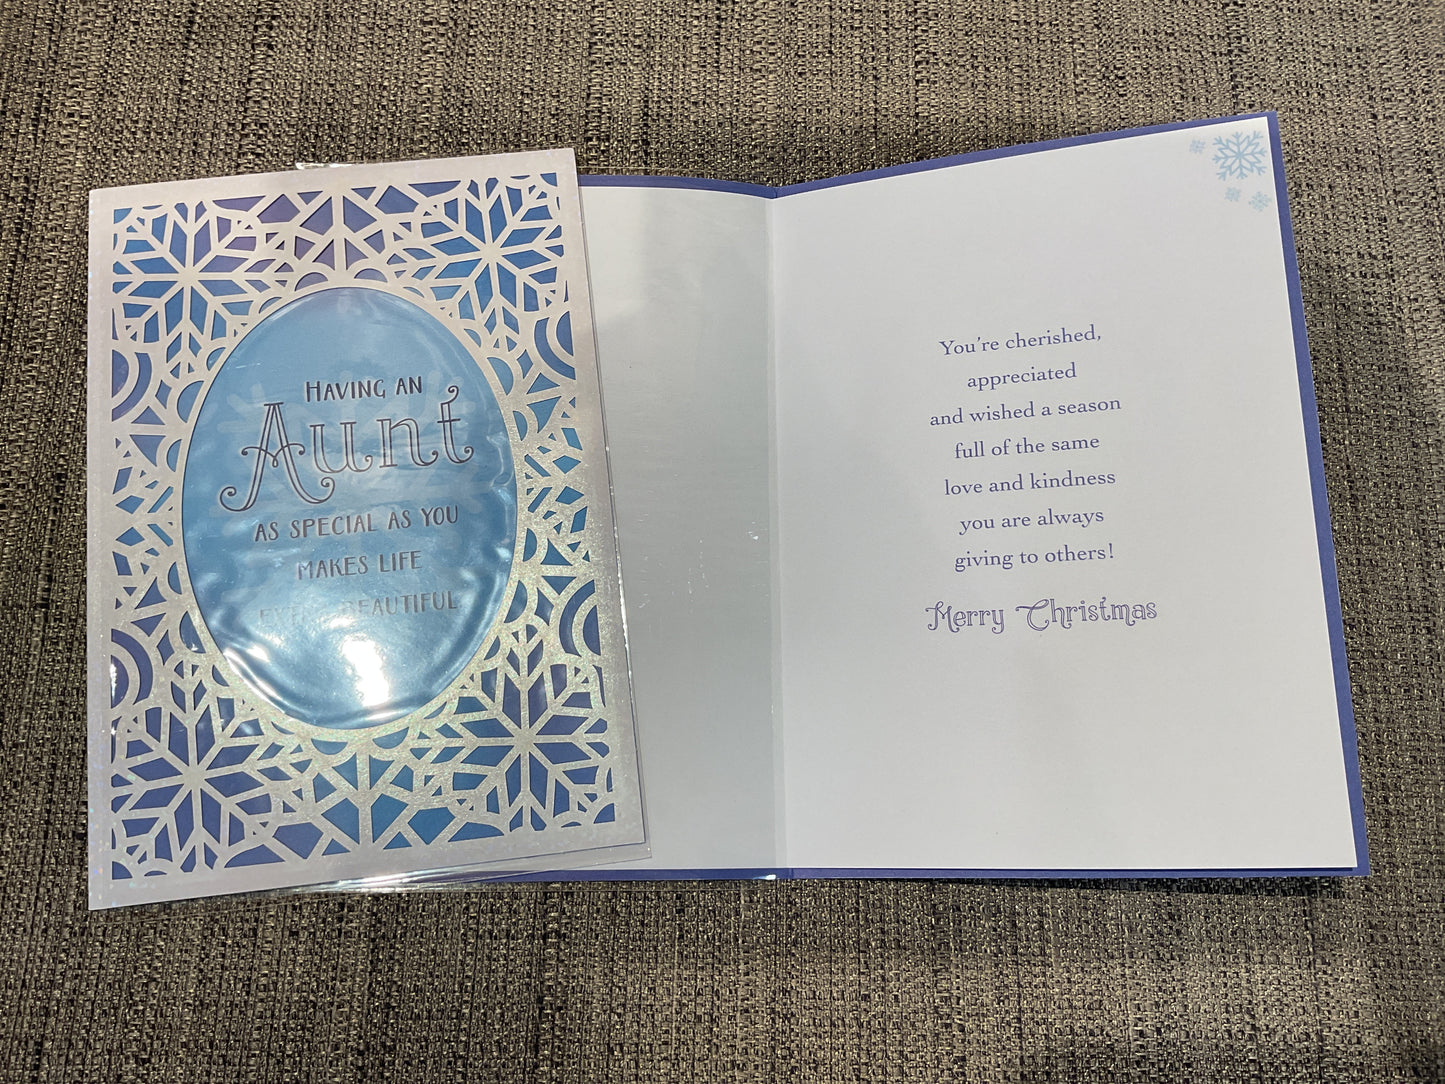 HAVING AN
Aunt
AS SPECIAL AS YOU
MAKES LIFE
BEAUTIFUL
You're cherished,
appreciated
and wished a season
full of the same
love and kindness
you are always
giving to others!
Merry Christmas